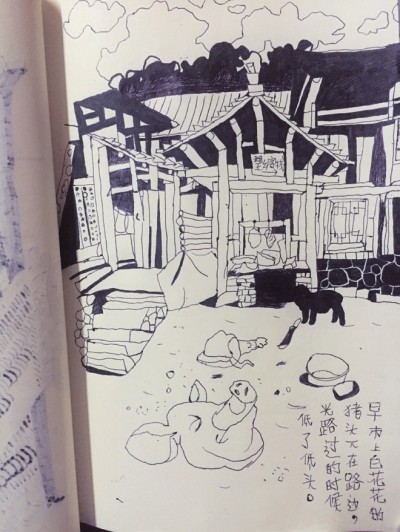 早市上白花花的
猪头兀在路边，
光路过的时候
低了低头。